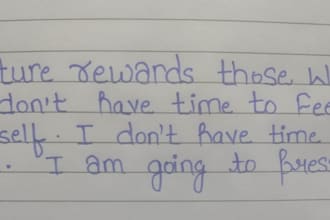 ture rewards those W
don't have time to Fee
self. I don't have time
. I am going to press